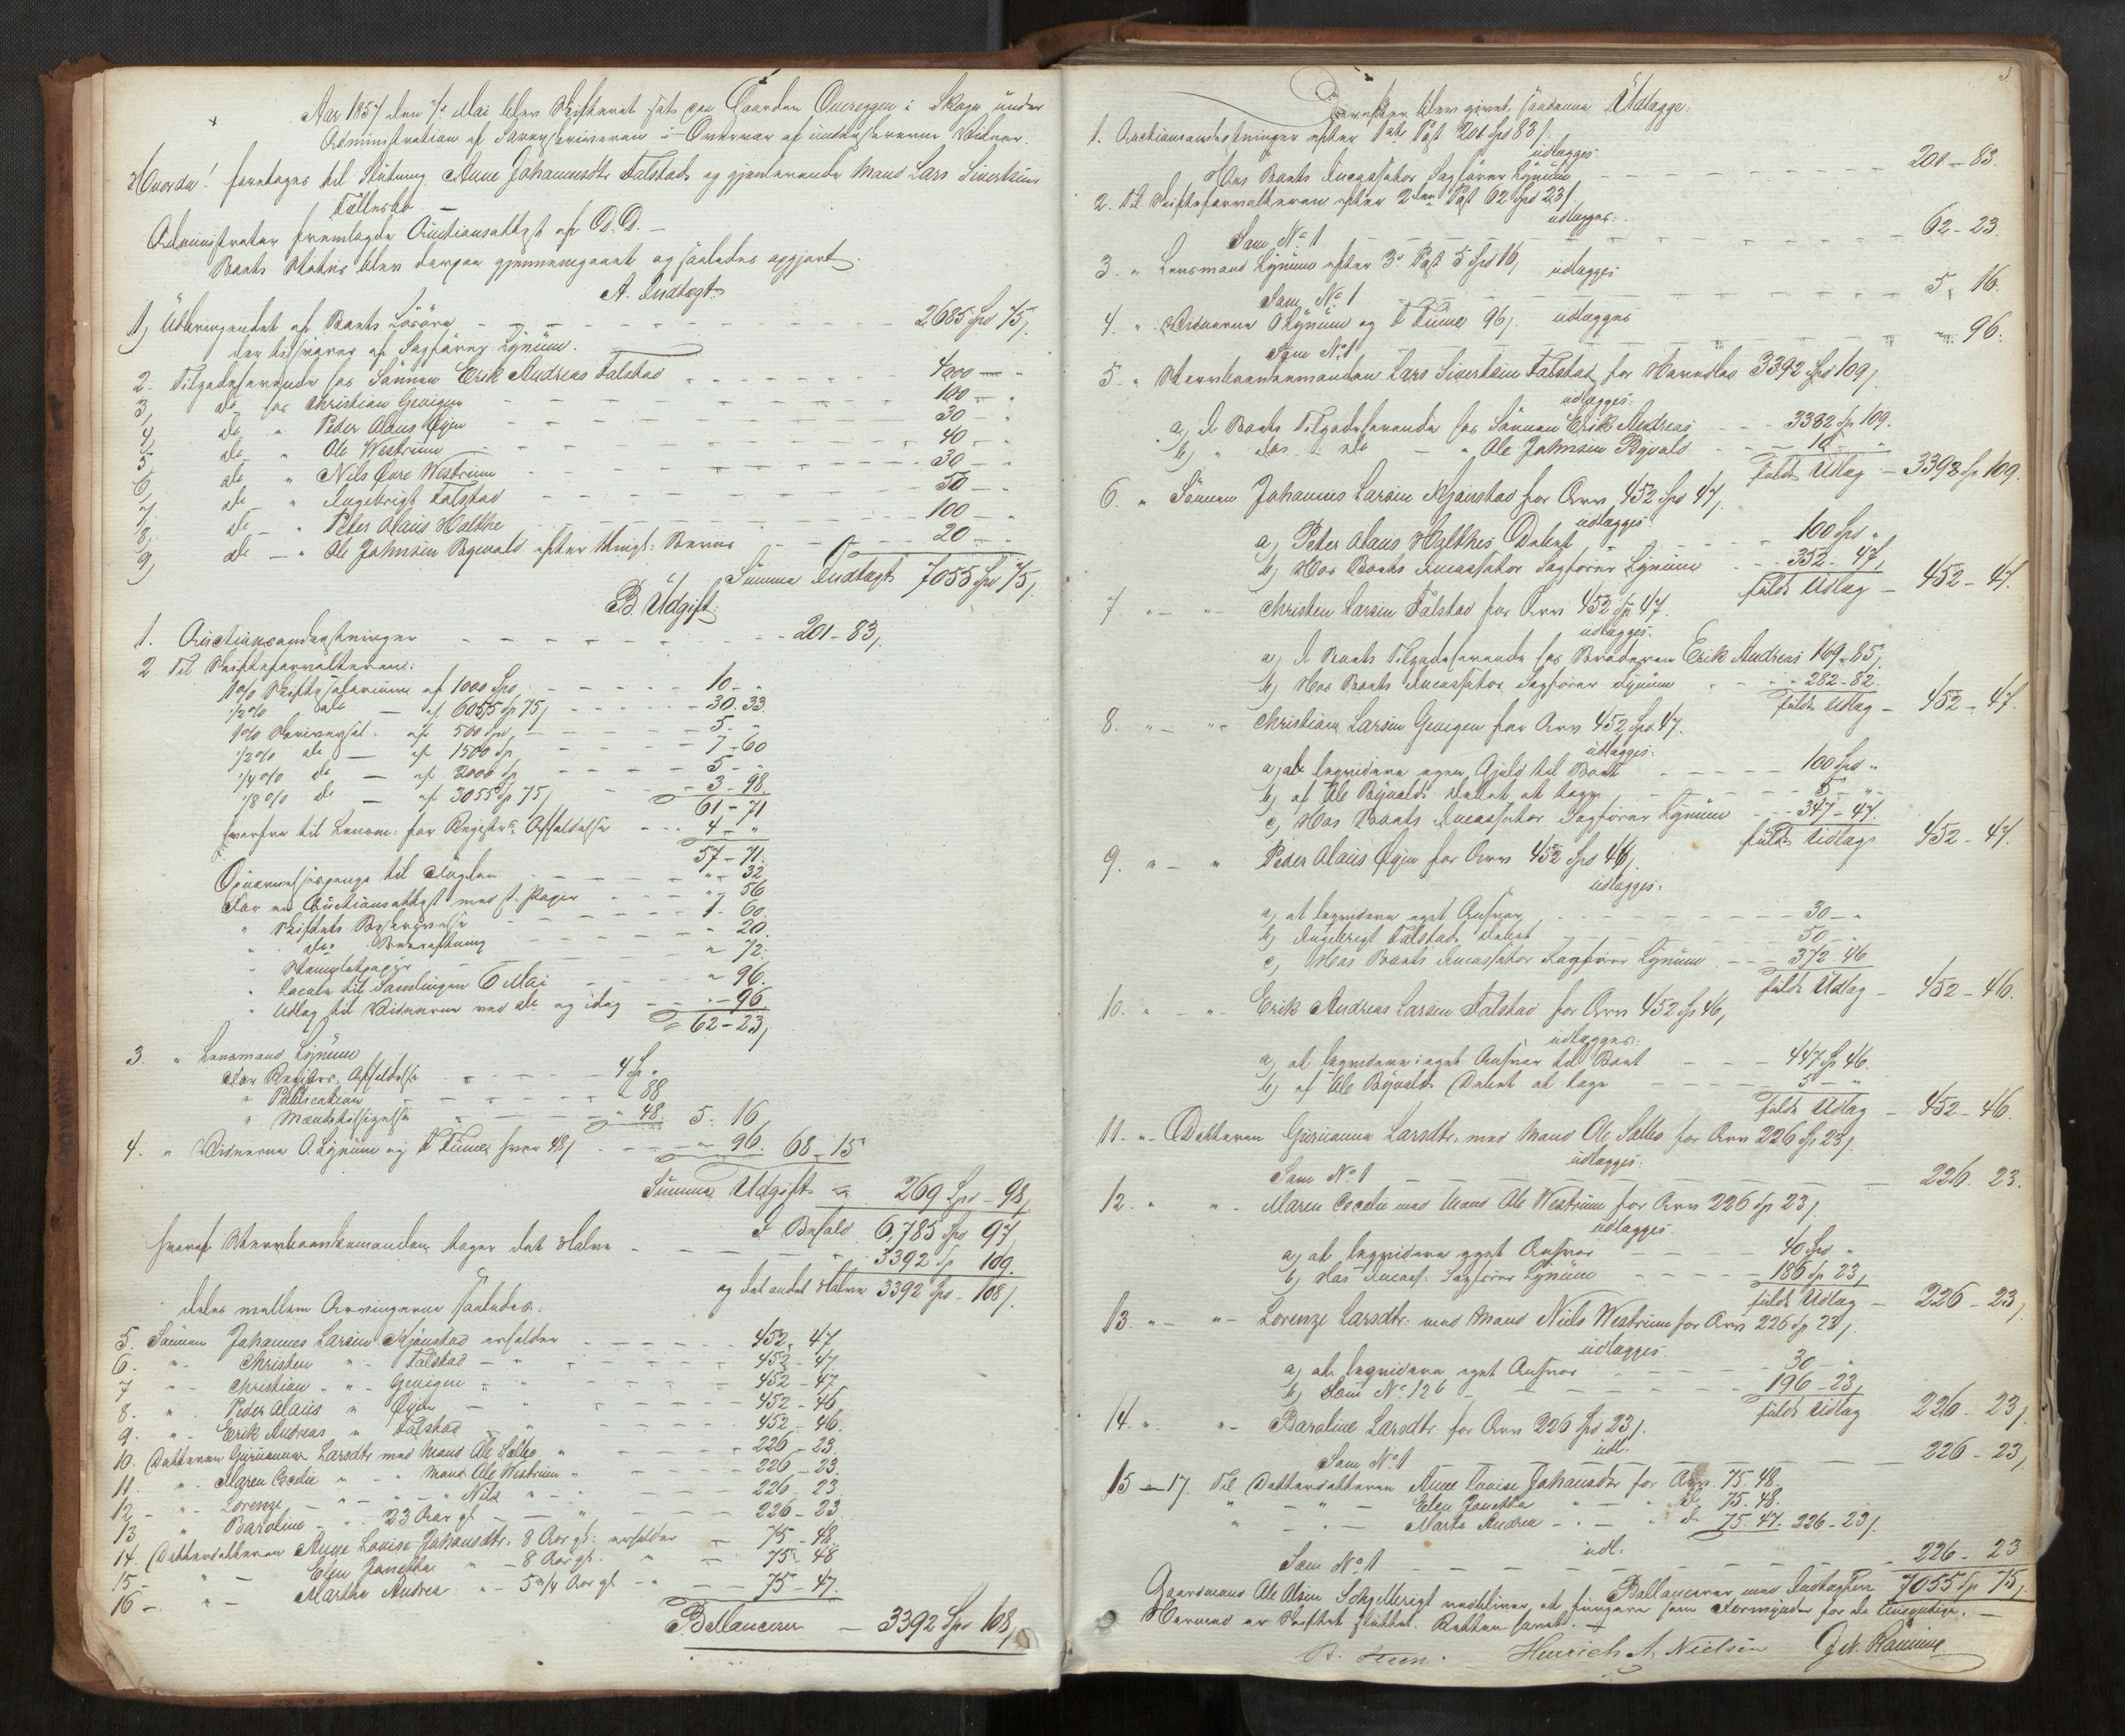 Aar 1857 den 7de Mai blev Skifteret sat paa Gaarden Overeggen i Skogn under
Administration af Sorenskriveren i Overvær af undertegnede Vidner.
Hvorda! foretages til Slutning Anne Johannesdtr Falstad og gjenlevende Mand Lars Sivertsens
Fællesbo.
Administrator fremlagde Auctionsattest af D.D.
Boets Status blev derpaa gjennemgaaet og saaledes opgjort.
A. Indtægt.
1, Udbringendet af Boets Løsøre 2685 Spd 75,
der tilsvares af Sagfører Lynum.
2. Tilgodehavende hos Sønnen Erik Andreas Falstad 4000 -
3, do hos Christian Gevigen 100 -
4, do " Peder Alaus Øyen 30 -
5, do " Ole Westrum 40 -
6, do " Nils Øvre Westrum 30 -
7. do " Ingebrigt Falstad 50 -
8, do " Peter Alaus Holthe 100 -
9, do - " Ole Johnsen Byvald efter 20 -
Summa Indtægt 7055 Spd 75,
B Udgift.
1. Auctionsomkostninger 201 - 83,
2. Til Skifteforvalteren:
1% Skiftesalarium af 1000 Spd 10 - "
1/2% do - af 6055 Sp 75, 30. 33
1% Skriversal. af 500 Spd, 5 -
1/2% do - af 1500 Sp 7 - 60
1/4% do - af 2000 Sp 5 - "
1/8% do - af 3055 Sp 75, 3 - 98.
61 - 71
herfra til Lensm: for Registr: Afholdelse 4 - "
57 - 71.
til Fogden " - 32
For en Auctionsattest med st. Papir " - 56
" Skiftets Beskrivelse 1. 60.
" dets Bekræftning " 20.
" Stemplet papir " 72.
" Locale til Samlingen 6 Mai " 96.
" Udlæg til Vidnerne ved do og idag " - 96
62 - 23,
3. " Lensmand Lynum
For Registr. Afholdelse 4 Sp "
" Publication " 88
" Mændstilsigelse " 48. 5. 16
4. " Vidnerne O. Lynum og T Fines hver 48, " 96. 68 - 15
Summa Udgift 269 Spd - 98,
I Behold 6,785 Spd 97,
hvoraf Stervboenkemanden tager det Halve 3392 Sp 109.
og det andet Halve 3392 Spd - 108,
deles mellem Arvingerne saaledes:
5. Sønnen Johannes Larsen Mjønstad erholder 452. 47
6. " - Christen " - Falstad - " 452 - 47.
7 " - Christian - " - Gevigen - " 452 - 47,
8. " - Peder Alaus " Øyen - " 452 - 46,
9. " - Erik Andreas " Falstad " 452 - 46.
10. Datteren Gurianna Larsdtr med Mand Ole Salbo " 226 - 23.
11. " - Maren Cecelie " - " Mand Ole Westrum " 226 - 23.
12 - " - Lorenze - " - " Nils " - " 226 - 23
13 " Baroline - " - 23 Aar gl. - " 226 - 23
14. Datterdatteren Anne Louise Johansdtr. 8 Aar gl: erholder 75 - 48.
15 - " - Elen Janetta " - 8 Aar gl. " 75 - 48
16 - " - Martha Andrea " - 5 3/4 Aar gl - " 75 - 47.
Ballancerer - 3392 Spd 108,
Derefter blev givet saadanne Udlægge:
1. Auctionsomkostninger efter 1ste Post 201 Spd 83,
udlægges.
Hos Boets Incassator Sagfører Lynum 201 - 83.
2. Til Skifteforvalteren efter 2den Post 62 Spd 23,
udlægges:
Som No 1 62 - 23.
3. " Lensmand Lynum efter 3de Post 5 Spd 16, udlægges
Som No 1 5, 16.
4. " Vidnerne O Lynum og T Fines 96,. udlægges
Som No 1 " 96.
5. " Stervboenkemanden Lars Sivertsen Falstad for Hovedlod 3392 Spd 109,
udlægges.
a, I Boets Tilgodehavende hos Sønnen Erik Andreas 3382 Sp 109.
b, " dos do - " Ole Johnsen Byvald 10 "
fuldt Udlæg - 3392 Sp 109.
6 " Sønnen Johannes Larsen Mjønstad for Arv 452 Spd 47,
udlægges
a, Peter Alaus Holthes Debet 100 Spd "
b, Hos Boets Incassator Sagfører Lynum 352 - 47,
fuldt Udlæg - 452 - 47.
7 " - " - Christen Larsen Falstad for Arv 452 Sp 47.
udlægges.
a, I Boets Tilgodehavende hos Broderen Erik Andreas 169 - 85,
b, Hos Boets Incassator Sagfører Lynum 282 - 82.
fuldt Udlæg - 452 - 47.
8. " - " - Christian Larsen Gevigen for Arv 452 Spd 47.
udlægges:
a, at leqvidere egen Gjæld til Boet 100 Spd "
b, af Ole Byvalds Debet at tage 5 - "
c, Hos Boets Incassator Sagfører Lynum 347 - 47.
fuldt Udlæg 452 - 47.
9. " - " Peder Alaus Øyen for Arv 452 Spd 46,
udlægges:
a, at leqvidere eget Ansvar 30 - "
b, Ingebrigt Falstads Debet 50 "
c, Hos Boets Incassator Sagfører Lynum 372. 46
fuldt Udlæg - 452 - 46.
10. " - " - Erik Andreas Larsen Falstad for Arv 452 Sp 46,
udlægges:
a, at leqvidere i eget Ansvar til Boet 447 Sp 46.
b, af Ole Byvalds Debet at tage 5 - "
fuldt Udlæg - 452 - 46.
11. " - Datteren Gurianna Larsdtr. med Mand Ole Salbo for Arv 226 Sp 23,
udlægges:
Som No 1 226. 23.
12. " " - Maren Cecelie med Mand Ole Westrum for Arv 226 Sp 23,
udlægges
a, at leqvidere eget Ansvar 40 Spd "
b, Hos Incass. Sagfører Lynum 186 Sp 23,
fuldt Udlæg - 226 - 23,
13. " - " - Lorenze Larsdtr: med Mand Niels Westrum for Arv 226 Sp 23,
udlægges
a, at leqvidere eget Ansvar 30 - "
b, Som No 12 b 196 - 23,
fuldt Udlæg 226. 23,
14. " - " - Baroline Larsdtr for Arv 226 Spd 23,
udl.
Som No 1 226 - 23,
15 - 17. Til Datterdatteren Anne Louise Johansdtr for Arv 75. 48.
" - " - Elen Janetta " - " do 75. 48.
" - " - Marta Andrea - " - " do 75. 47. 226 - 23,
udl.
Som No 1 226 - 23
Ballancerer med Indtægten 7055 Sp 75,
Gaardmand Ole Olsen vedbliver at fungere som Formynder for de Umyndige. -
Hermed er Skiftet sluttet. Retten hævet.
Heinrich A. Nielsen